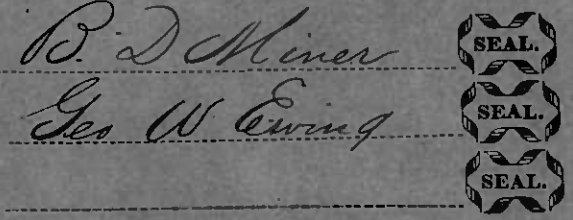 B. D Miner SEAL.
Geo W Ewing SEAL.
SEAL.